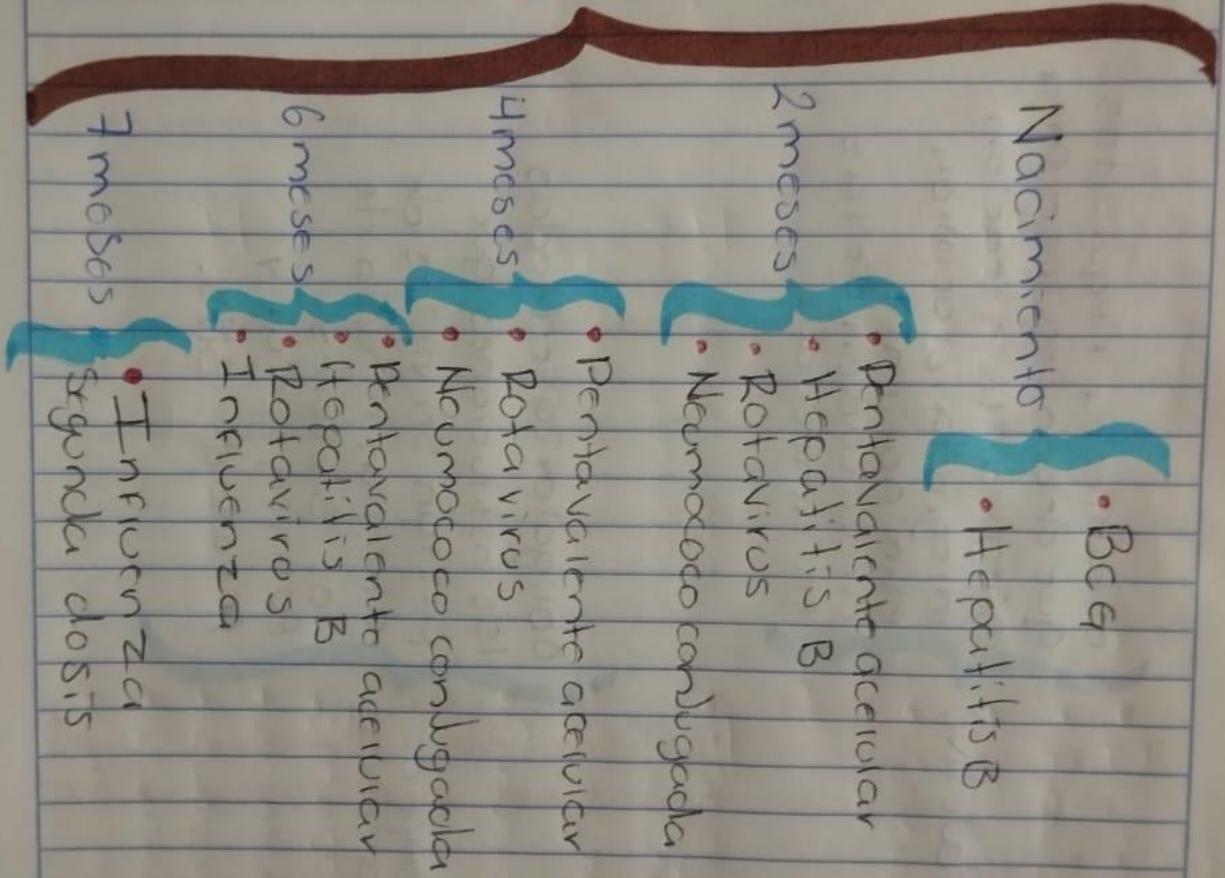 Nacimiento
• BCG
• Hepatitis B
2 meses
• Pentavalente acelular
• Hepatitis B
• Rotavirus
• Neumococo conjugada
4 meses
• Pentavalente acelular
• Rotavirus
• Neumococo conjugada
6 meses
• Pentavalente acelular
• Hepatitis B
• Rotavirus
• Influenza
7 meses
• Influenza
Segunda dosis